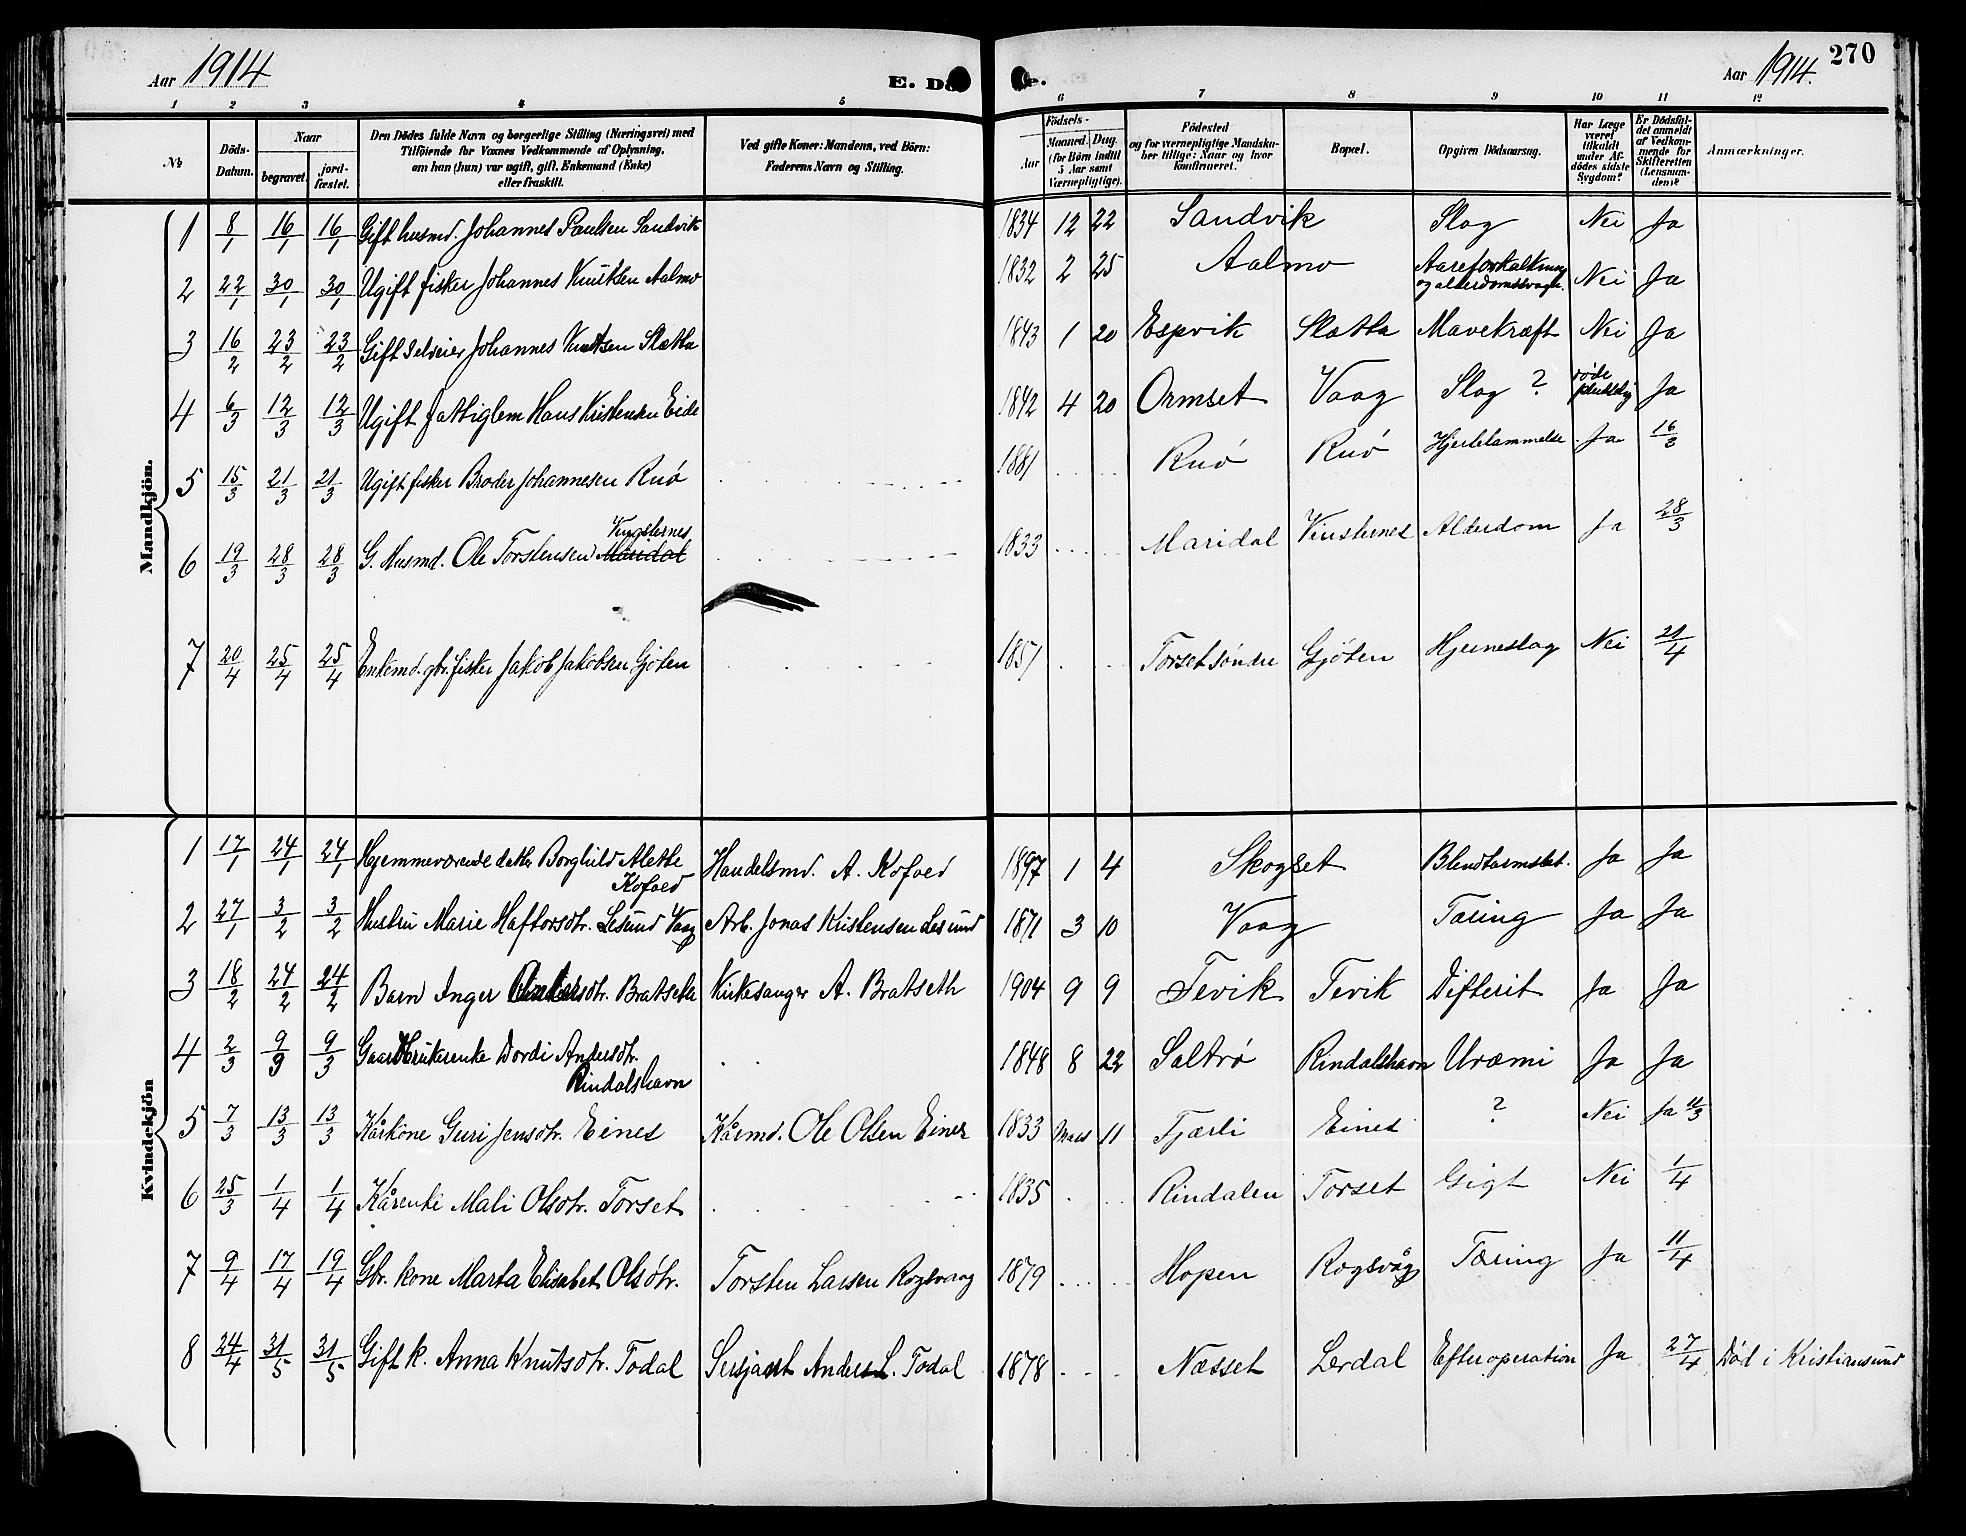 Aar 1914
E. Dø e.
Aar 1914.
270
1 2 3 4 5 6 7 8 9 10 11 12
№
Döds-Datum.
Naar
begravet.
jord-fæstet.
Den Dödes fulde Navn og borgerlige Stilling (Næringsvei) med Tilföiende for Voxnes Vedkommende af Oplysning, om han (hun) var ugift, gift, Enkemand (Enke) eller fraskilt.
Ved gifte Koner: Mandens, ved Börn: Faderens Navn og Stilling.
Födsels-
Aar
Maaned. Dag. (for Börn indtil 5 Aar samt Værnepligtige).
Födested og for værnepligtige Mandskaber tillige: Naar og hvor konfirmeret.
Bopæl.
Opgiven Dödsaarsag.
Har Læge været tilkaldt under Afdödes sidste Sygdom?
Er Dödsfaldet anmeldt af Vedkommende for Skifteretten (Lensmanden)?
Anmærkninger.
Mandkjön.
1 8/1 16/1 16/1 Gift husmd. Johannes Paulsen Sandvik 1834 12 22 Sandvik Slag Nei Ja
2 22/1 30/1 30/1 Ugift fisker Johannes Knutsen Aalmo 1832 2 25 Aalmo Aareforkalkning og alderdomssvagh. Nei Ja
3 16/2 23/2 23/2 Gift selveier Johannes Knutsen Slatla 1843 1 20 Espvik Slatla Mavekræft Nei Ja
4 6/3 12/3 12/3 Ugift fattiglem Hans Kristensen Eide 1842 4 20 Ormset Vaag Slag ? døde pludselig Ja
5 15/3 21/3 21/3 Ugift fisker Broder Johannesen Ruø 1881 Ruø Ruø Hjertelammelse Ja 16/3
6 19/3 28/3 28/3 G. Husmd. Ole Torstensen 1833 Maridal Alderdom Ja 28/3
7 20/4 25/4 25/4 Enkemd. gbr. fisker Jakob Jakobsen Gjøten 1851 Torset søndre Gjøten Hjerneslag Nei 21/4
Kvindekjön
1 17/1 24/1 24/1 Hjemmeværende datter Borghild Alette Kofoed Handelsmd. A. Kofoed 1897 1 4 Skogset Blendtarmsbet. Ja Ja
2 27/1 3/2 3/2 Hustru Marie Haftorsdtr. Lesund Vaag Arb. Jonas Kristensen Lesund 1871 3 10 Vaag Tæring Ja Ja
3 18/2 24/2 24/2 Barn Inger Bratseth Kirkesanger A. Bratseth 1904 9 9 Tevik Tevik Difterit Ja Ja
4 2/3 9/3 9/3 Gaardbrukerenke Dordi Andersdtr. Rindalshavn 1848 8 22 Saltrø Rindalshavn Uræmi Ja Ja
5 7/3 13/3 13/3 Kårkone Guri Jensdtr. Eines Kårmd. Ole Olsen Eines 1833 Mars 11 Fjærli Eines ? Nei Ja 11/3
6 25/3 1/4 1/4 Kårenke Mali Olsdtr. Torset 1835 Rindalen Torset Gigt Nei 1/4
7 9/4 17/4 19/4 Gbr. kone Marta Elisabet Olsdtr. Torsten Larsen Rogsvaag 1879 Hopen Rogsvåg Tæring Ja 11/4
8 24/4 31/5 31/5 Gift k. Anna Knutsdtr. Todal Sersjant Anders L. Todal 1878 Næsset Lerdal Efter operation Ja 27/4 Død i Kristiansund